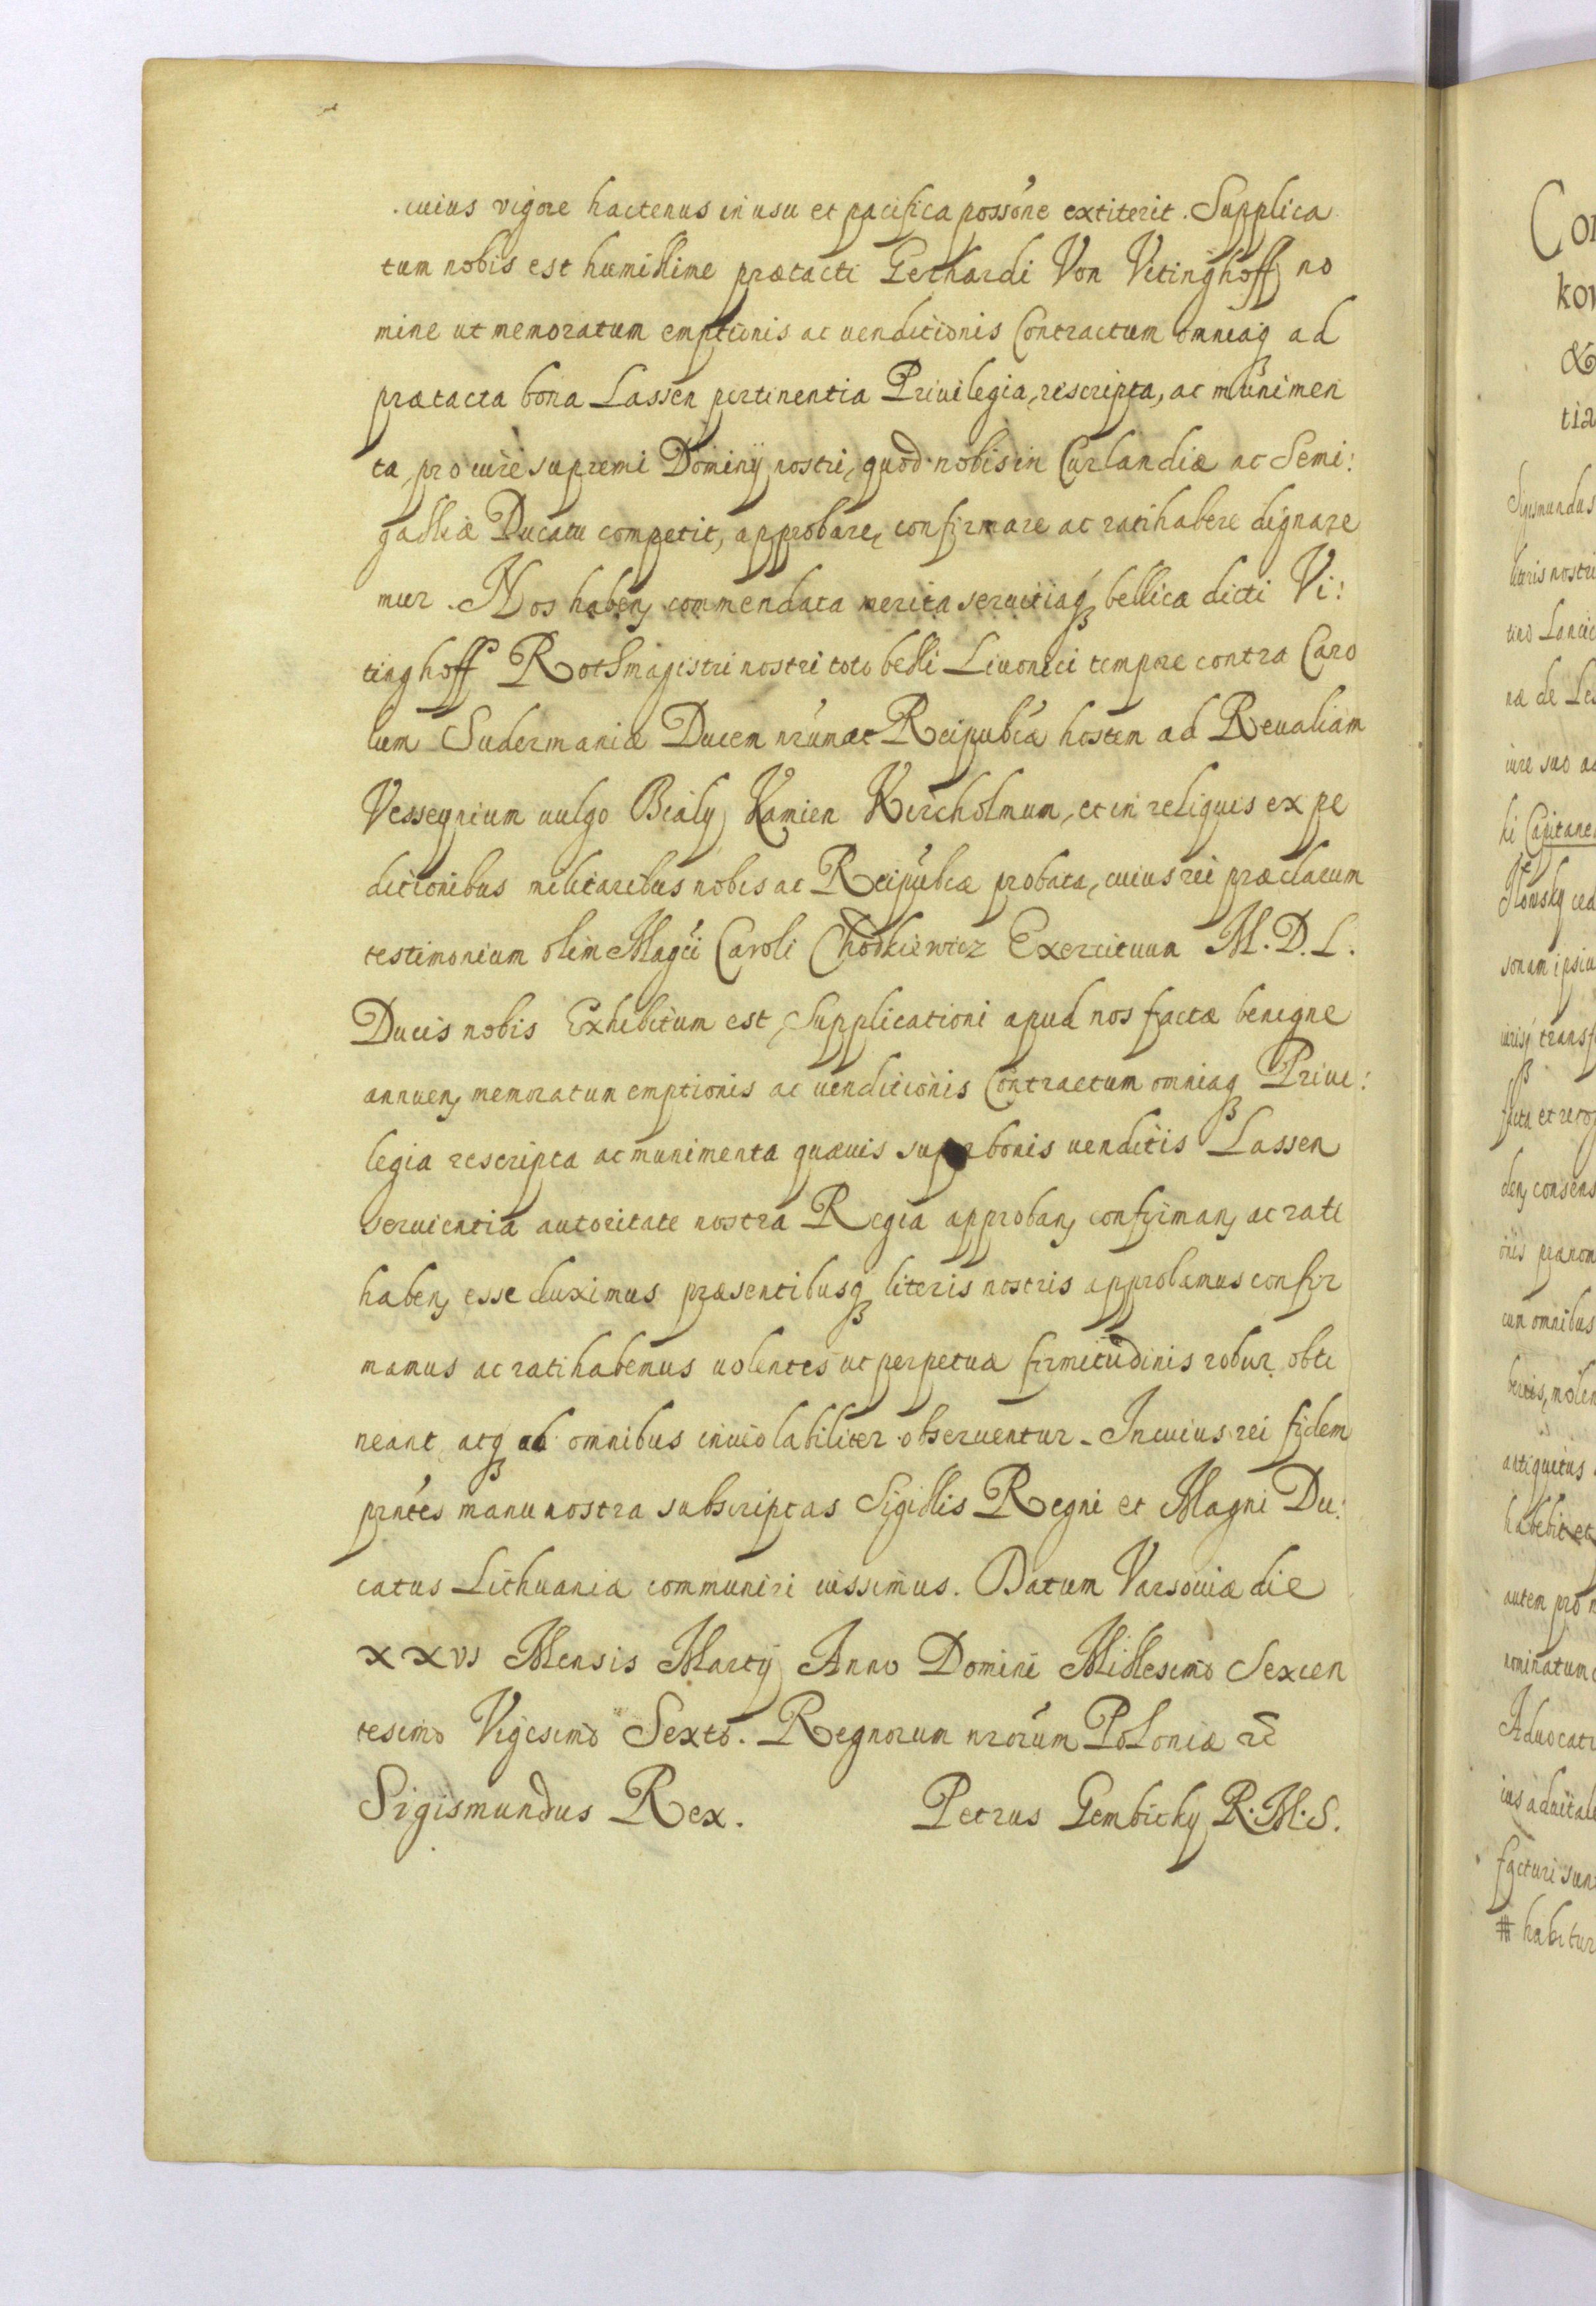 cuius vigore hactenus in usu et pacifica possone extiterit. Supplica
tum nobis est humillime prætacti Gerhardi Von Vitinghoff no
mine ut memoratum emptionis ac uenditionis Contractum omniaq ad
prætacta bona Lassen pertinentia Priuilegia, rescripta, ac munimen
ta, pro iure supremi Dominij nostri, quod nobis in Curlandiæ ac Semi:
galliæ Ducatu competit, approbare, confirmare ac ratihabere dignare
mur. Nos haben, commendata merita seruitiaq bellica dicti Vi:
tinghoff Rothmagistri nostri toto belli Liuonici tempore contra Caro
lum Sudermaniæ Ducem nrum ac Reipubca hostem ad Reualiam
Vessegnium uulgo Bialy Kamien Kircholmum, et in reliquis expe
ditionibus militaribus nobis ac Reipubcæ probata, cuius rei præclarum
testimonium olim Magci Caroli Chodkiewicz Exercituum M. D. L.
Ducis nobis Exhibitum est, Supplicationi apud nos factæ benigne
annuen, memoratum emptionis ac uenditionis Contractum omniaq Priui:
legia rescripta ac munimenta quæuis super bonis uenditis Lassen
seruientia autoritate nostra Regia approban, confirman, ac rati
haben, esse duximus præsentibusq literis nostris approbamus confir
mamus ac ratihabemus uolentes ut perpetuæ firmitudinis robur obti
neant atq ab omnibus inuiolabiliter obseruentur. In cuius rei fidem
prntes manu nostra subscriptas Sigillis Regni et Magni Du:
catus Lithuaniæ communiri iussimus. Datum Varsouiæ die
xxvj Mensis Martij Anno Domini Millesimo Sexcen
tesimo Vigesimo Sexto. Regnorum nrorum Poloniæ &
Sigismundus Rex. Petrus Gembicky R. M. S.
Sigismundus
literis nostri
Capitane
transf
den, consens
cum omnibus
antiquitus
habebit et
autem pro n
Aduocati
facturi sun
# habitur